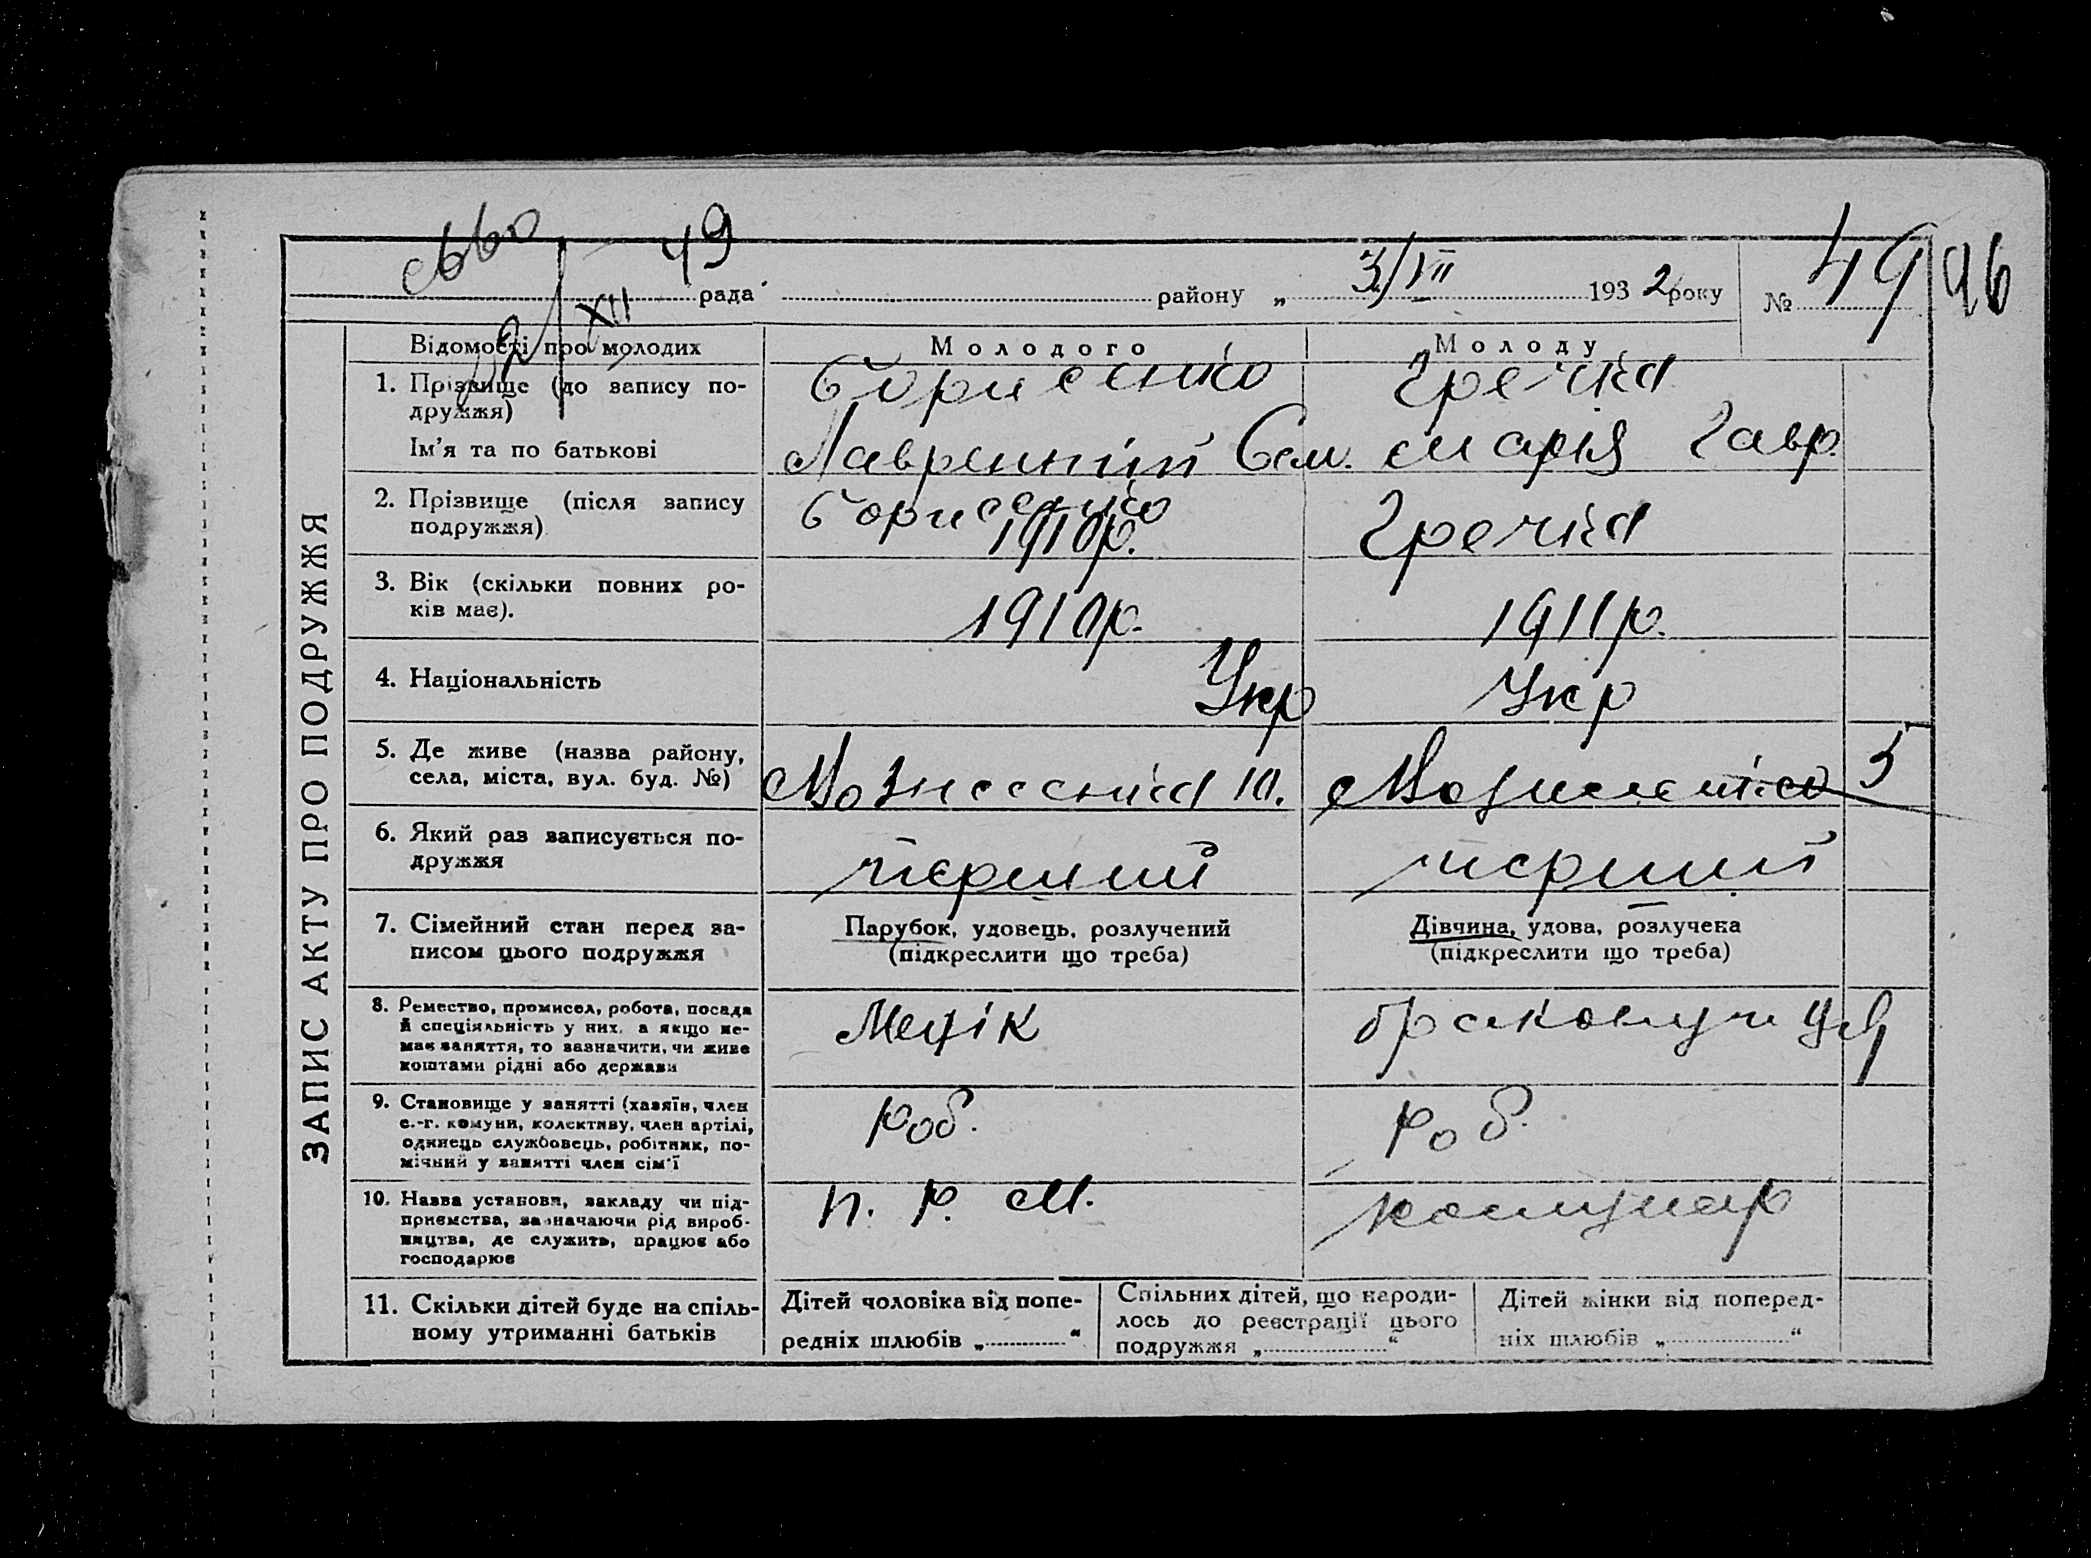 49
рада района „ 3/VII 1932 року № 49 96
XII
ЗАПИС АКТУ ПРО ПОДРУЖЖЯ
Відомості про молодих Молодого Молоду
1. Прізвище (до запису по-
дружжя)
Борисенко Гречка
Ім'я та по батькові Лаврентій Сем. Марія Гавр.
2. Прізвище (після запису
подружжя)
Борисенко Гречка
1910р.
3. Вік (скільки повних ро-
ків має).
1910р. 1911р.
4. Національність Укр Укр
5. Де живе (назва району,
села, міста, вул. буд. №)
10. 5
6. Який раз записується по-
дружжя
перший перший
7. Сімейний стан перед за-
писом цього подружжя
Парубок, удовець, розлучений
(підкреслити що треба)
Дівчина, удова, розлучена
(підкреслити що треба)
8. Ремество, промисел, робота, посада
й спеціяльність у них, а якщо не-
має заняття, то зазначити, чи живе
коштами рідні або держави
9. Становище у занятті (хазяїн, член
с.-г. комуни, колективу, член артілі,
одинець службовець, робітник, по-
мічний у занятті член сім'ї
роб. роб.
10. Назва установи, закладу чи під-
приємства, зазначаючи рід вироб-
ництва, де служить, працює або
господарює
п. р. м. Комунар
11. Скільки дітей буде на спіль-
ному утриманні батьків
Дітей чоловіка від попе-
редніх шлюбів „ “
Спільних дітей, що народи-
лось до реєстрації цього
подружжя „ “
Дітей жінки від поперед-
ніх шлюбів „ “